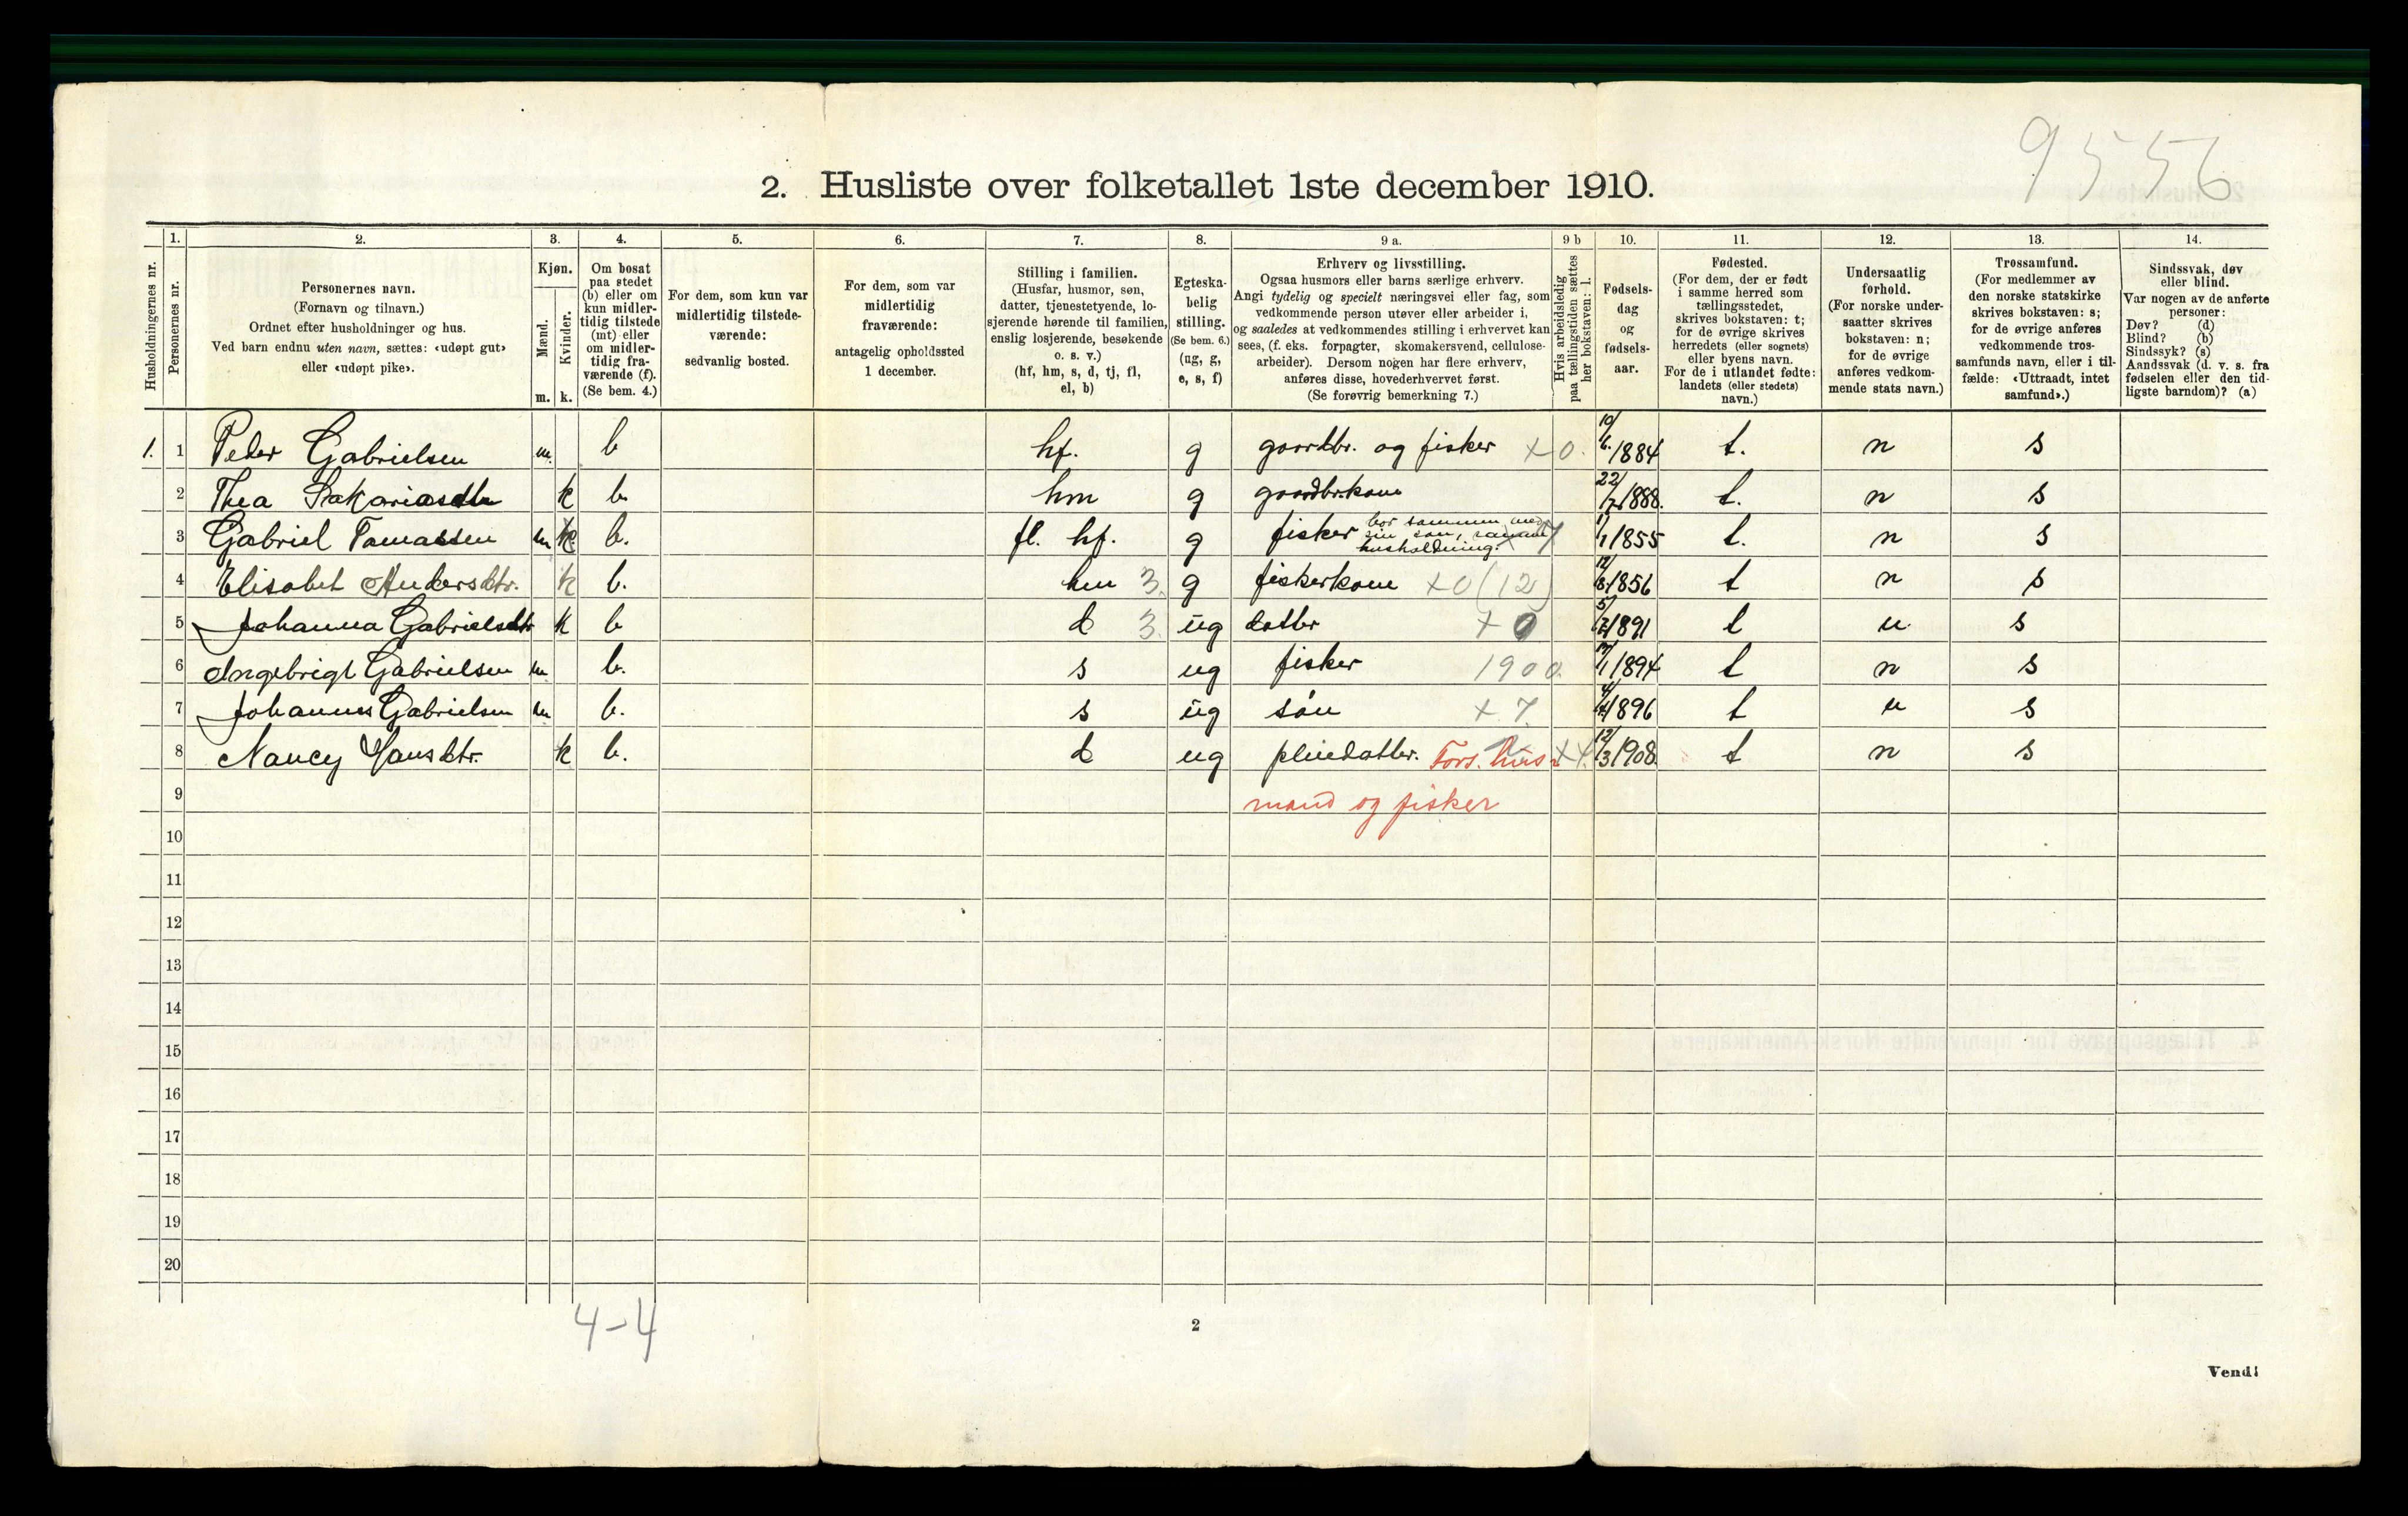 9556
2. Husliste over folketallet 1ste december 1910.
Husholdningernes nr.
1.
Personernes nr.
2.
Personernes navn.
(Fornavn og tilnavn.)
Ordnet efter husholdninger og hus.
Ved barn endnu uten navn, sættes: «udøpt gut»
eller «udøpt pike».
3.
Kjøn.
Mænd.
Kvinder.
m. k.
4.
Om bosat
paa stedet
(b) eller om
kun midler-
tidig tilstede
(mt) eller
om midler-
tidig fra-
værende (f).
(Se bem. 4.)
5.
For dem, som kun var
midlertidig tilstede-
værende:
sedvanlig bosted.
6.
For dem, som var
midlertidig
fraværende:
antagelig opholdssted
1 december.
7.
Stilling i familien.
(Husfar, husmor, søn,
datter, tjenestetyende, lo-
sjerende hørende til familien,
enslig losjerende, besøkende
o. s. v.)
(hf, hm, s, d, tj, fl,
el, b)
8.
Egteska-
belig
stilling.
(Se bem. 6.)
(ug, g,
e, s, f)
9 a.
Erhverv og livsstilling.
Ogsaa husmors eller barns særlige erhverv.
Angi tydelig og specielt næringsvei eller fag, som
vedkommende person utøver eller arbeider i,
og saaledes at vedkommendes stilling i erhvervet kan
sees, (f. eks. forpagter, skomakersvend, cellulose-
arbeider). Dersom nogen har flere erhverv,
anføres disse, hovederhvervet først.
(Se forøvrig bemerkning 7.)
9 b
Hvis arbeidsledig
paa tællingstiden sættes
her bokstaven: l.
10.
Fødsels-
dag
og
fødsels-
aar.
11.
Fødested.
(For dem, der er født
i samme herred som
tællingsstedet,
skrives bokstaven: t;
for de øvrige skrives
herredets (eller sognets)
eller byens navn.
For de i utlandet fødte:
landets (eller stedets)
navn.)
12.
Undersaatlig
forhold.
(For norske under-
saatter skrives
bokstaven: n;
for de øvrige
anføres vedkom-
mende stats navn.)
13.
Trossamfund.
(For medlemmer av
den norske statskirke
skrives bokstaven: s;
for de øvrige anføres
vedkommende tros-
samfunds navn, eller i til-
fælde: «Uttraadt, intet
samfund».)
14.
Sindssvak, døv
eller blind.
Var nogen av de anførte
personer:
Døv? (d)
Blind? (b)
Sindssyk? (s)
Aandssvak (d. v. s. fra
fødselen eller den tid-
ligste barndom)? (a)
1. 1 Peder Gabrielsen m. b hf. g gaardbr. og fisker x 0. 10/6 1884 t. n s
2 Thea Sakariasdtr k b. hm g gaardbr.kone 22/7 1888. t. n s
3 Gabriel Tomassen m k b. fl. hf. g fisker bor sammen med sin søn, samme husholdning. x 7 1/1 1855 t. n s
4 Elisabet Andersdtr. k b. hm 3. g fiskerkone x0 (12) 12/8 1856 t n s
5 Johanna Gabrielsdtr k b d 3. ug datter x 0 5/7 1891 t n s
6 Ingebrigt Gabrielsen m b. s ug fisker 1900. 17/1 1894 t n s
7 Johannes Gabrielsen m b. s ug søn x 7. 4/4 1896 t n s
8 Nancy Hansdtr. k b. d ug pleiedatter. Fors. hus- x4. 12/3 1908. t n s
9 mand og fisker
10
11
12
13
14
15
16
17
18
19
20
4-4
2
Vend!